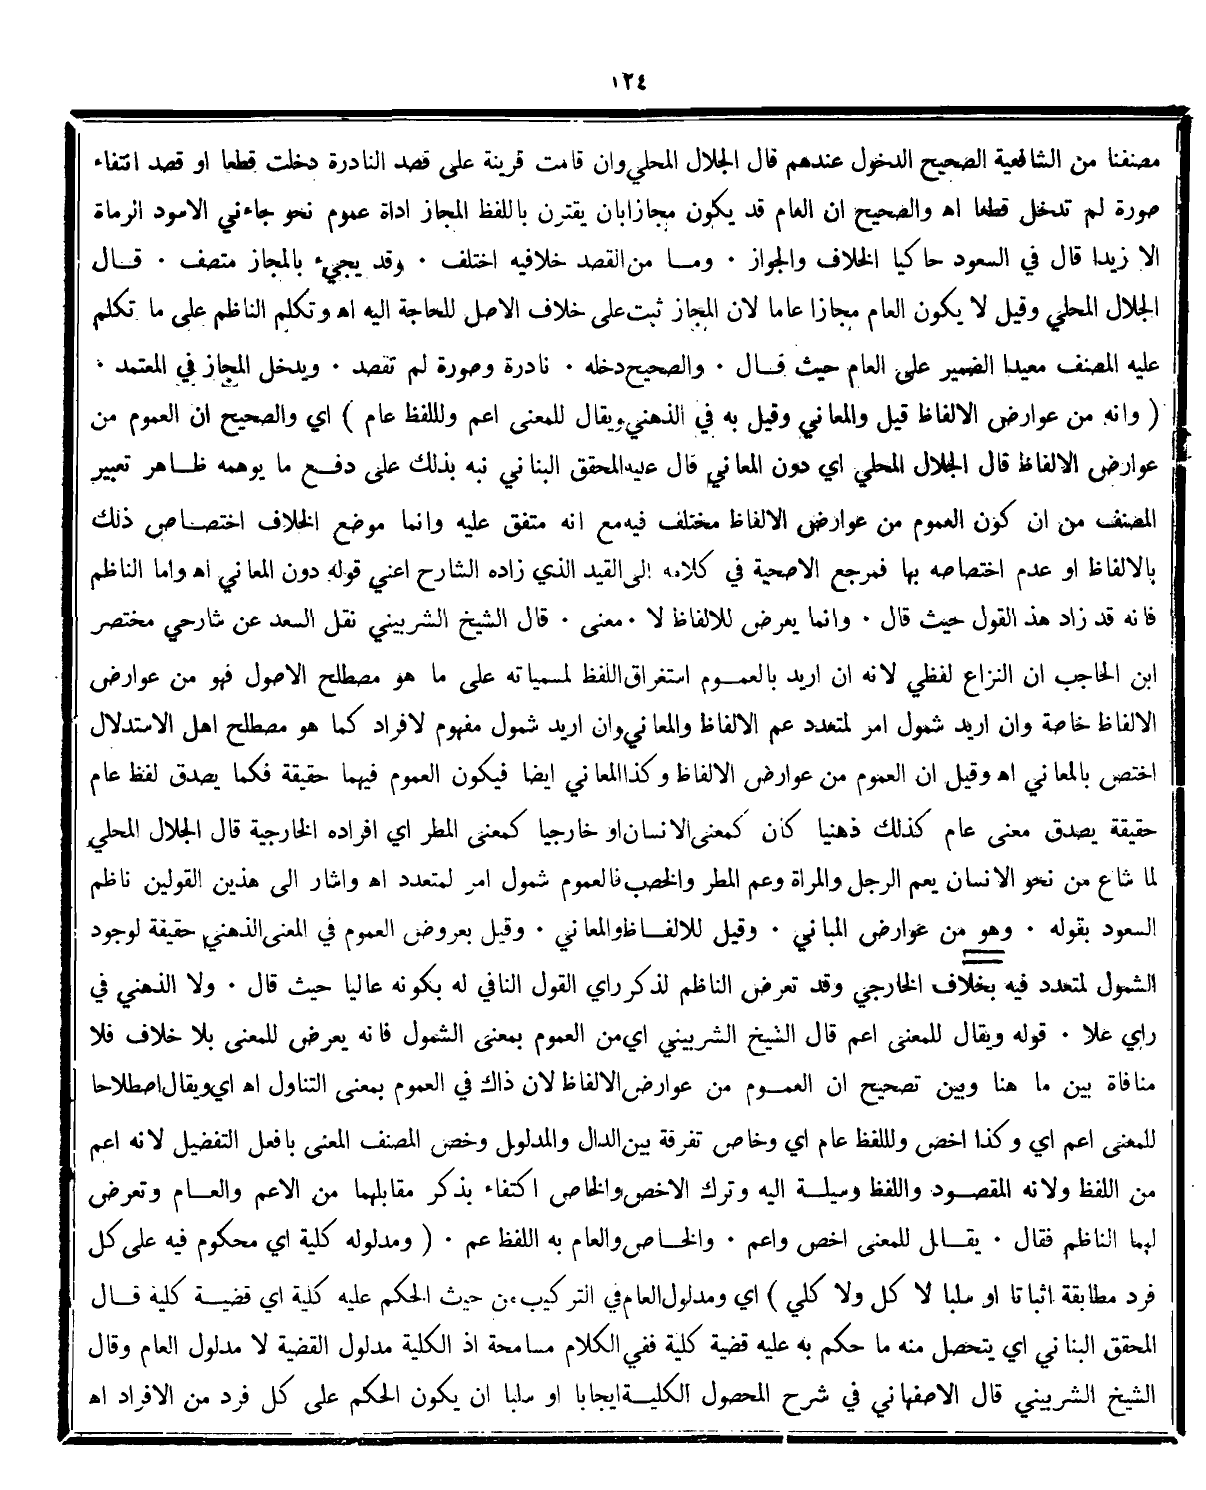 ١٢٤
مصنفنا من الشافعية الصحيح الدخول عندهم قال الجلال المحلي وان قامت قرينة على قصد النادرة دخلت قطعا او قصد انتفاء
صورة لم تدخل قطعا اه والصحيح ان العام قد يكون مجازا بان يقترن باللفظ المجاز اداة عموم نحو جاءني الاسود الرماة
الا زيدا قال في السعود حاكيا الخلاف والجواز ٠ وما من القصد خلافيه اختلف ٠ وقد يجيء بالمجاز متصف ٠ قال
الجلال المحلي وقيل لا يكون العام مجازا عاما لان المجاز ثبت على خلاف الاصل للحاجة اليه اه وتكلم الناظم على ما تكلم
عليه المصنف معيدا الضمير على العام حيث قال ٠ والصحيح دخله ٠ نادرة وصورة لم تقصد ٠ ويدخل المجاز في المعتمد ٠
( وانه من عوارض الالفاظ قيل والمعاني وقيل به في الذهني ويقال للمعنى اعم وللفظ عام ) اي والصحيح ان العموم من
عوارض الالفاظ قال الجلال المحلي اي دون المعاني قال عليه المحقق البناني نبه بذلك على دفع ما يوهمه ظاهر تعبير
المصنف من ان كون العموم من عوارض الالفاظ مختلف فيه مع انه متفق عليه وانما موضع الخلاف اختصاص ذلك
بالالفاظ او عدم اختصاصه بها فمرجع الاصحية في كلامه الى القيد الذي زاده الشارح اعني قوله دون المعاني اه واما الناظم
فانه قد زاد هذ القول حيث قال ٠ وانما يعرض للالفاظ لا ٠ معنى ٠ قال الشيخ الشربيني نقل السعد عن شارحي مختصر
ابن الحاجب ان النزاع لفظي لانه ان اريد بالعموم استغراق اللفظ لمسمياته على ما هو مصطلح الاصول فهو من عوارض
الالفاظ خاصة وان اريد شمول امر لمتعدد عم الالفاظ والمعاني وان اريد شمول مفهوم لافراد كما هو مصطلح اهل الاستدلال
اختص بالمعاني اه وقيل ان العموم من عوارض الالفاظ وكذا المعاني ايضا فيكون العموم فيهما حقيقة فكما يصدق لفظ عام
حقيقة يصدق معنى عام كذلك ذهنيا كان كمعنى الانسان او خارجيا كمعنى المطر اي افراده الخارجية قال الجلال المحلي
لما شاع من نحو الانسان يعم الرجل والمراة وعم المطر والخصب فالعموم شمول امر لمتعدد اه واشار الى هذين القولين ناظم
السعود بقوله ٠ وهو من عوارض المباني ٠ وقيل للالفاظ والمعاني ٠ وقيل بعروض العموم في المعنى الذهني حقيقة لوجود
الشمول لمتعدد فيه بخلاف الخارجي وقد تعرض الناظم لذكر راي القول النافي له بكونه عاليا حيث قال ٠ ولا الذهني في
راي علا ٠ قوله ويقال للمعنى اعم قال الشيخ الشربيني اي من العموم بمعنى الشمول فانه يعرض للمعنى بلا خلاف فلا
منافاة بين ما هنا وبين تصحيح ان العموم من عوارض الالفاظ لان ذاك في العموم بمعنى التناول اه اي ويقال اصطلاحا
للمعنى اعم اي وكذا اخص وللفظ عام اي وخاص تفرقة بين الدال والمدلول وخص المصنف المعنى بافعل التفضيل لانه اعم
من اللفظ ولانه المقصود واللفظ وسيلة اليه وترك الاخص والخاص اكتفاء بذكر مقابلهما من الاعم والعام وتعرض
لهما الناظم فقال ٠ يقال للمعنى اخص واعم ٠ والخاص والعام به اللفظ عم ٠ ( ومدلوله كلية اي محكوم فيه على كل
فرد مطابقة اثباتا او سلبا لا كل ولا كلي ) اي ومدلول العام في التركيب من حيث الحكم عليه كلية اي قضية كلية قال
المحقق البناني اي يتحصل منه ما حكم به عليه قضية كلية ففي الكلام مسامحة اذ الكلية مدلول القضية لا مدلول العام وقال
الشيخ الشربيني قال الاصفهاني في شرح المحصول الكلية ايجابا او سلبا ان يكون الحكم على كل فرد من الافراد اه